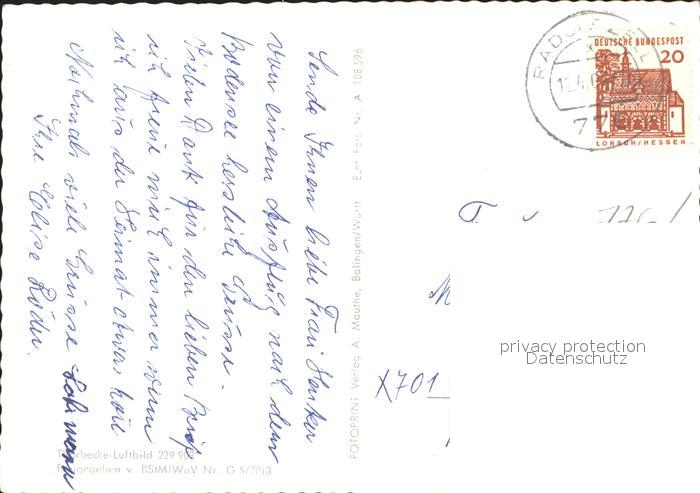 Sende Ihnen liebe Frau Henker
von einem Ausflug nach dem
Bodensee herzliche Grüsse.
Vielen Dank für den lieben Brief
ich freue mich immer wenn
ich aus der Heimat etwas höre
Nochmals viele Grüsse
Ihre Elise Röder.
FOTOPRINT Verlag A. Mauthe, Balingen/Württ Echt Foto Nr. A 108 596
-Luftbild 229 9
v. BStMfWuV Nr. G 5/7013
RADOLFZELL
77
DEUTSCHE BUNDESPOST
20
LORSCH/HESSEN
X701
privacy protection
Datenschutz